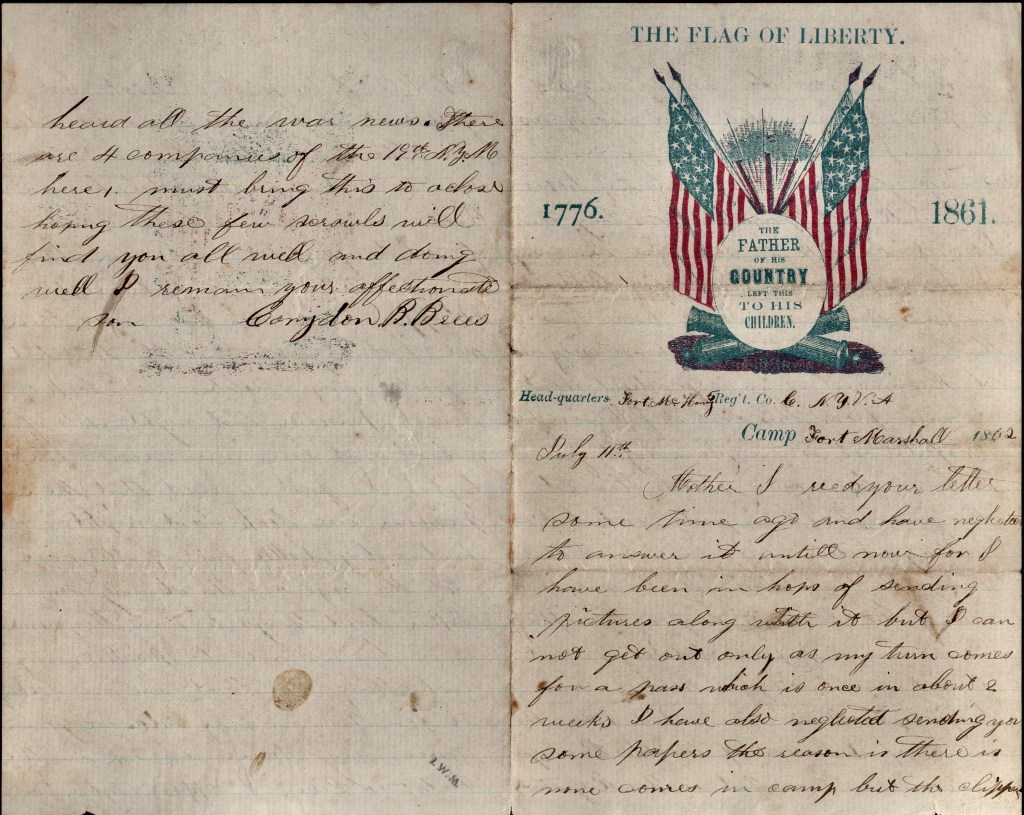 heard all the war news. There
are 4 companies of the 19th N.Y.M
here, must bring this to a close
hoping these few scrawls will
find you all well and doing
well I remain your affectionate
son Corydon B.
2.W.M.
THE FLAG OF LIBERTY.
1776. 1861.
THE
FATHER
OF HIS
COUNTRY
LEFT THIS
TO HIS
CHILDREN.
Head-quarters Fort Mc Reg't. Co. C. N.Y.V.A
Camp Fort Marshall 1862
July 11th
Mother I recd your letter
some time ago and have neglected
to answer it untill now for I
have been in hops of sending
pictures along with it but I can
not get out only as my turn comes
for a pass which is once in about 2
weeks I have also neglected sending you
some papers the reason is there is
none comes in camp but the clipper